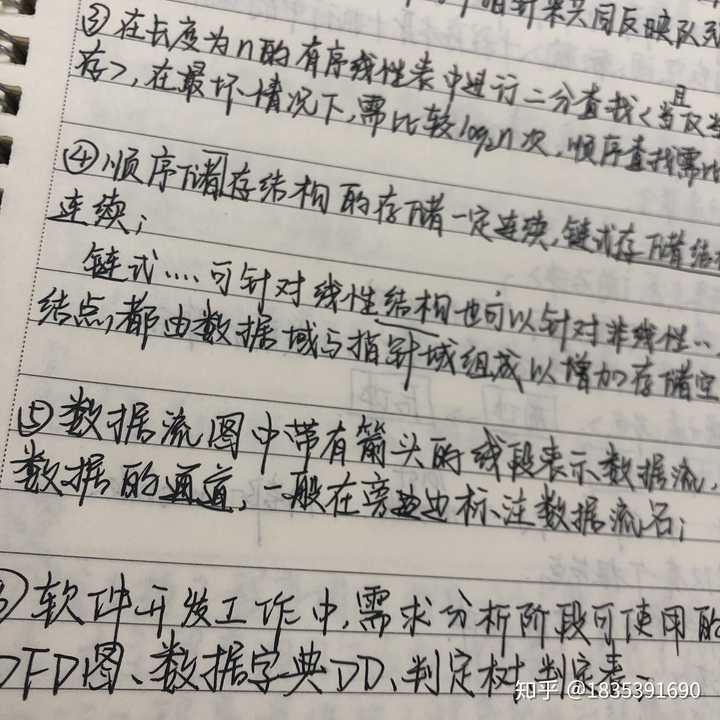 共同反映队列
③在长度为n的有序线性表中进行二分查找<当且仅当
存>,在最坏情况下,需比较log₂n次,顺序查找需比
④顺序存储结构的存储一定连续,链式存储结构
连续;
链式....可针对线性结构也可以针对非线性..
结点都由数据域与指针域组成以增加存储空
⑤数据流图中带有箭头的线段表示数据流,
数据的通道,一般在旁边边标注数据流名;
软件开发工作中,需求分析阶段可使用的
DFD图、数据字典DD、判定树,判定表、
知乎 @1835391690